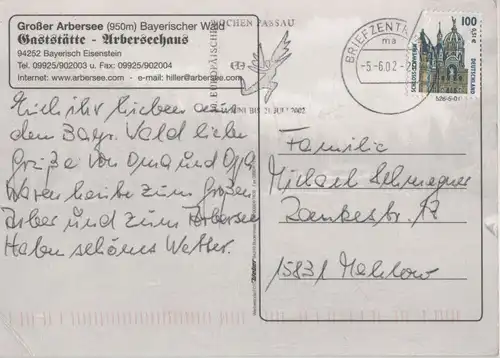 Großer Arbersee (950m) Bayerischer Wald
Gaststätte - Arberseehaus
94252 Bayerisch Eisenstein
Tel. 09925/902003 u. Fax: 09925/902004
Internet: www.arbersee.com - e-mail: hiller@arbersee.com
EUROPÄISCHE WOCHEN PASSAU
JULI 2002
BRIEFZENTRUM
ma
-5.-6.02-2
100
0,51 €
DEUTSCHLAND
SCHLOSS SCHWERIN
Euch ihr Lieben aus
dem Bayr. Wald liebe
Grüße von Oma und Opa
Waren heute zum Großen
Arber und zum Arbersee
Haben schönes Wetter.
Familie
Michael
15831 Mahlow